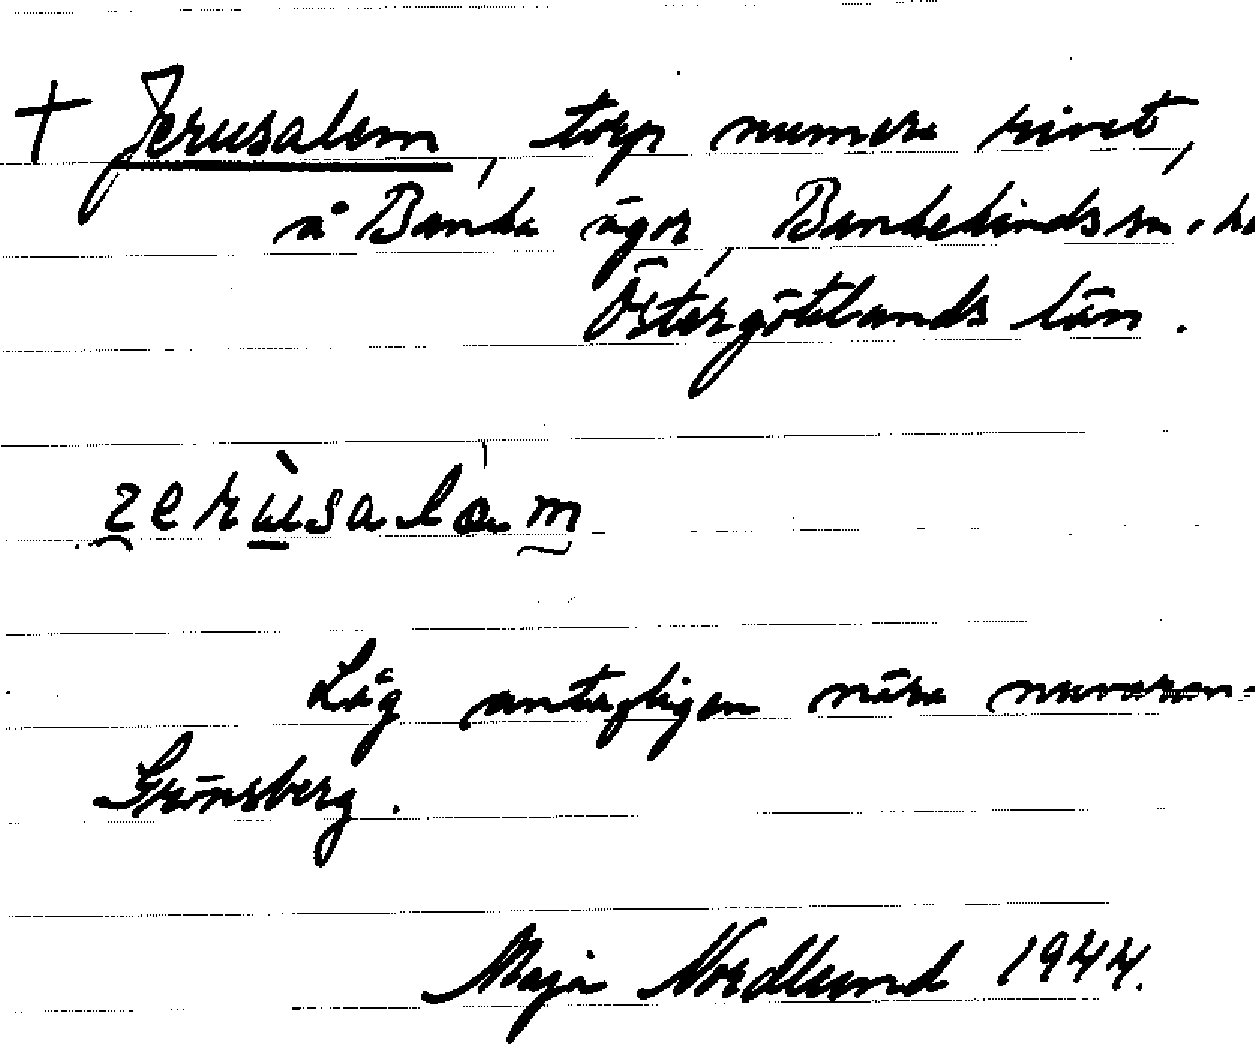 † Jerusalem, torp numera rivet,
å Banke ägor, Bankekinds sn. o. h
Östergötlands län.
zerùsalam
Låg antagligen nära nuvaran-
Grönsberg.
Maja Nordlund 1944.